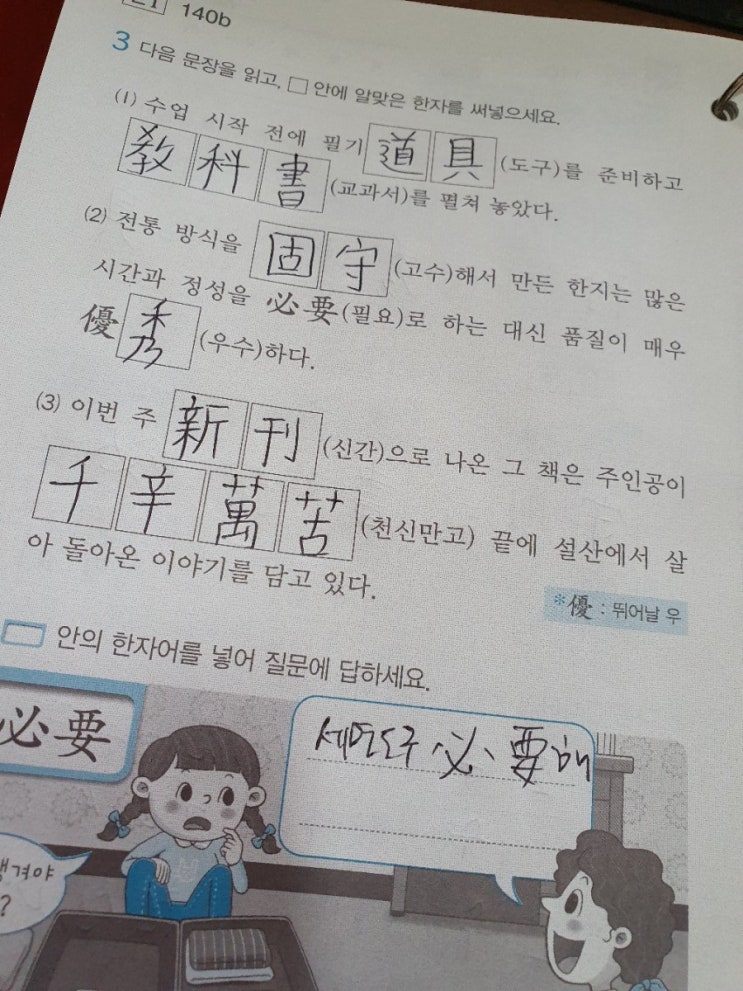 140b
3 다음 문장을 읽고, □ 안에 알맞은 한자를 써넣으세요.
(1) 수업 시작 전에 필기 道具 (도구)를 준비하고
敎科書 (교과서)를 펼쳐 놓았다.
(2) 전통 방식을 固守 (고수)해서 만든 한지는 많은
시간과 정성을 必要(필요)로 하는 대신 품질이 매우
優秀 (우수)하다.
(3) 이번 주 新刊 (신간)으로 나온 그 책은 주인공이
千辛萬苦 (천신만고) 끝에 설산에서 살
아 돌아온 이야기를 담고 있다.
*優 : 뛰어날 우
안의 한자어를 넣어 질문에 답하세요.
必要
세면도구 必要해
챙겨야
?